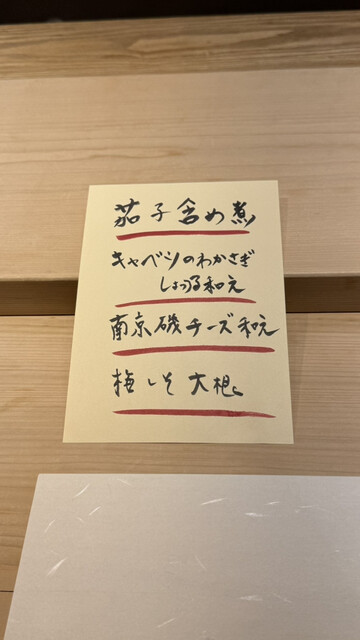 茄子含め煮
キャベツのわかさぎ
しょうる和え
南京磯チーズ和え
梅しそ大根